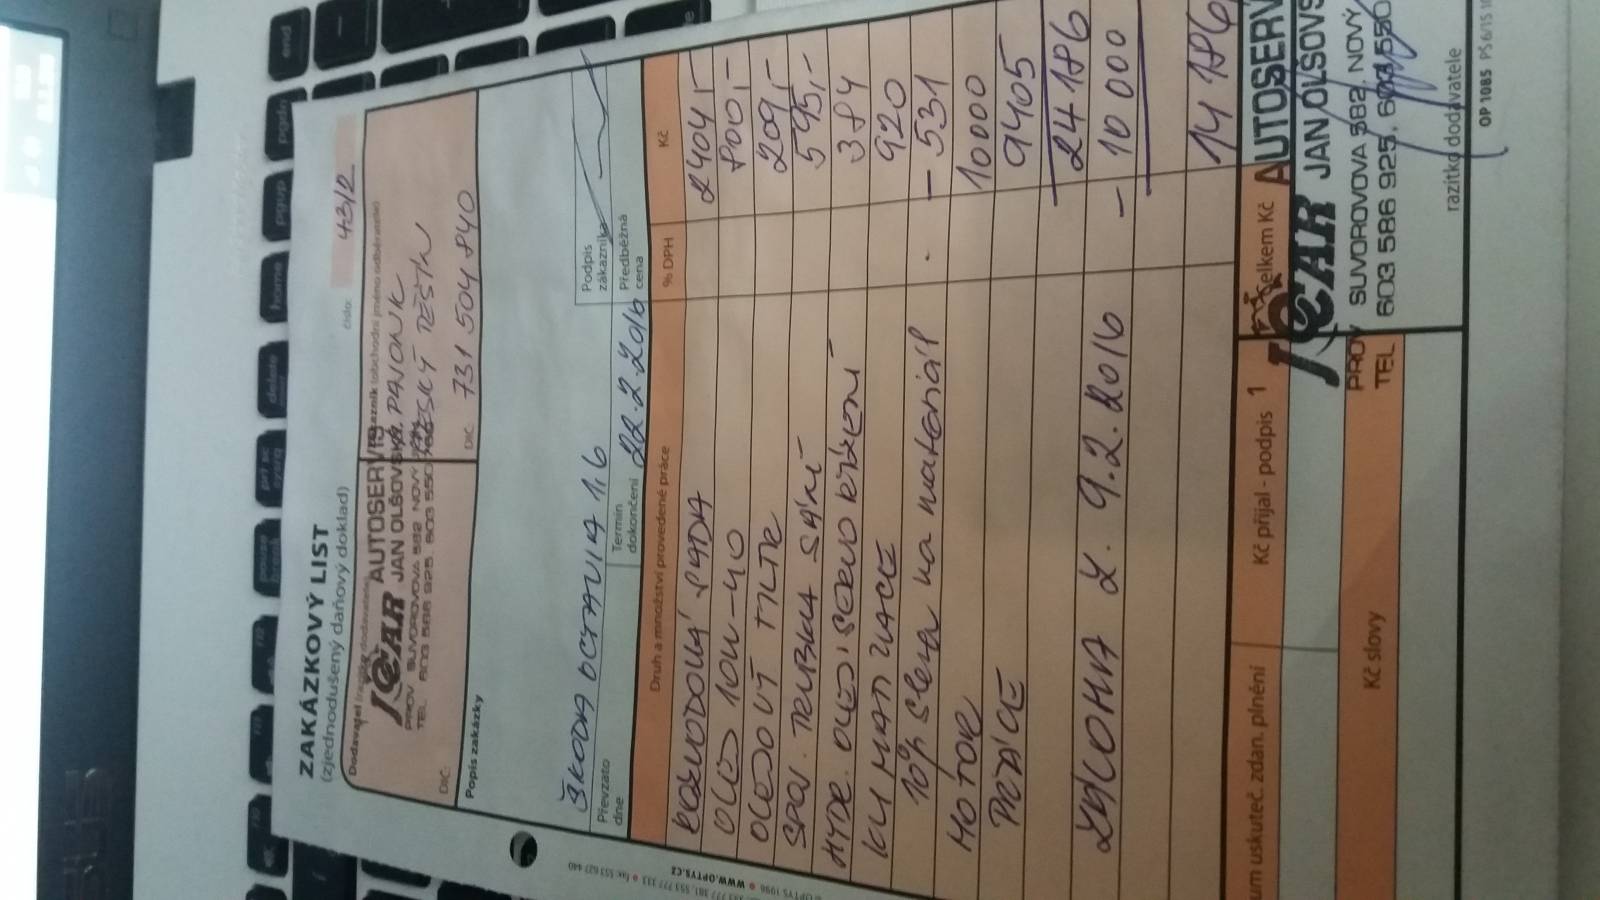 ZAKÁZKOVÝ LIST
(zjednodušený daňový doklad)
číslo: 43/2
Dodavatel
AUTOSERVIS
JAN OLŠOVSKÝ
PROV SUVOROVOVA 582 NOVÝ
TEL 603 586 925, 603 550
DIČ:
Zákazník (obchodní jméno odběratele)
TĚŠÍN
DIČ: 731 504 840
Popis zakázky
ŠKODA OCTAVIA 1,6
Podpis zákazníka
Převzato dne
Termín dokončení 22.2.2016
Předběžná cena
Druh a množství provedené práce % DPH Kč
ROZVODOVÁ SADA 2404,-
OLEJ 10W-40 800,-
OLEJOVÝ FILTR 209,-
SPOJ. TRUBKA SÁNÍ 595,-
HYDR. OLEJ SERVO ŘÍZENÍ 384
KLIMATIZACE 920
10% sleva na materiál - 531
MOTOR 10000
PRÁCE 9405
24186
ZÁLOHA Z. 9.2.2016 - 10 000
14 186
um uskuteč. zdan. plnění
Kč přijal - podpis 1
Celkem Kč
AUTOSERV
CAR JAN OLŠOVS
PROV SUVOROVOVA 582, NOVÝ
TEL 603 586 925, 603 550
Kč slovy
razítko dodavatele
OPTYS 1996 • WWW.OPTYS.CZ
OP 1085